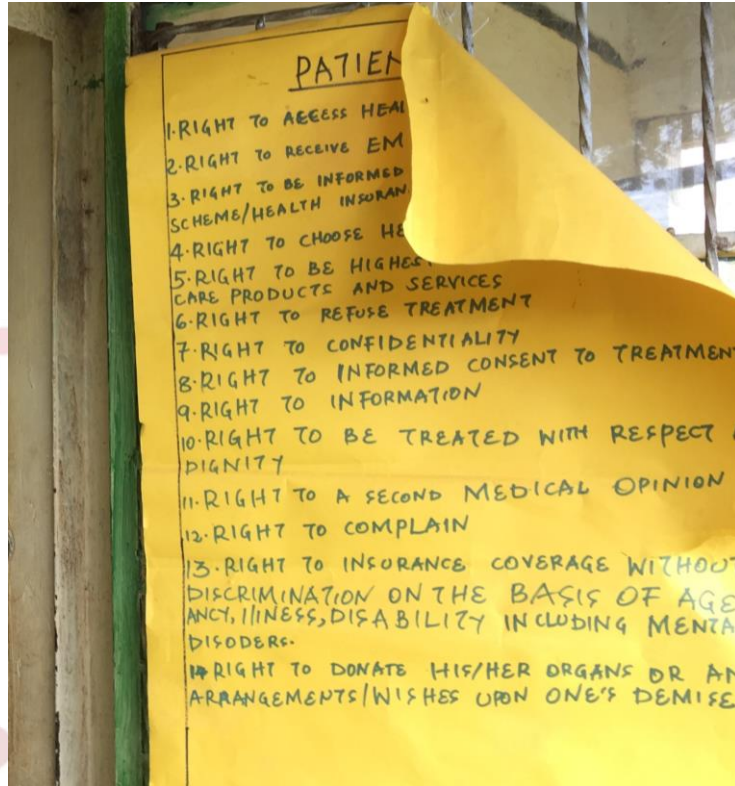 PATIEN
1.RIGHT TO ACCESS HEAL
2.RIGHT TO RECEIVE EM
3.RIGHT TO BE INFORMED
SCHEME/HEALTH INSURAN
4.RIGHT TO CHOOSE HE
5.RIGHT TO BE HIGHEST
CARE PRODUCTS AND SERVICES
6.RIGHT TO REFUSE TREATMENT
7.RIGHT TO CONFIDENTIALITY
8.RIGHT TO INFORMED CONSENT TO TREATMENT
9.RIGHT TO INFORMATION
10.RIGHT TO BE TREATED WITH RESPECT
DIGNITY
11.RIGHT TO A SECOND MEDICAL OPINION
12.RIGHT TO COMPLAIN
13.RIGHT TO INSURANCE COVERAGE WITHOUT
DISCRIMINATION ON THE BASIS OF AGE
ANCY, IllNESS, DISABILITY INCLUDING MENTA
DISODERS.
14 RIGHT TO DONATE HIS/HER ORGANS OR AN
ARRANGEMENTS/WISHES UPON ONE'S DEMISE